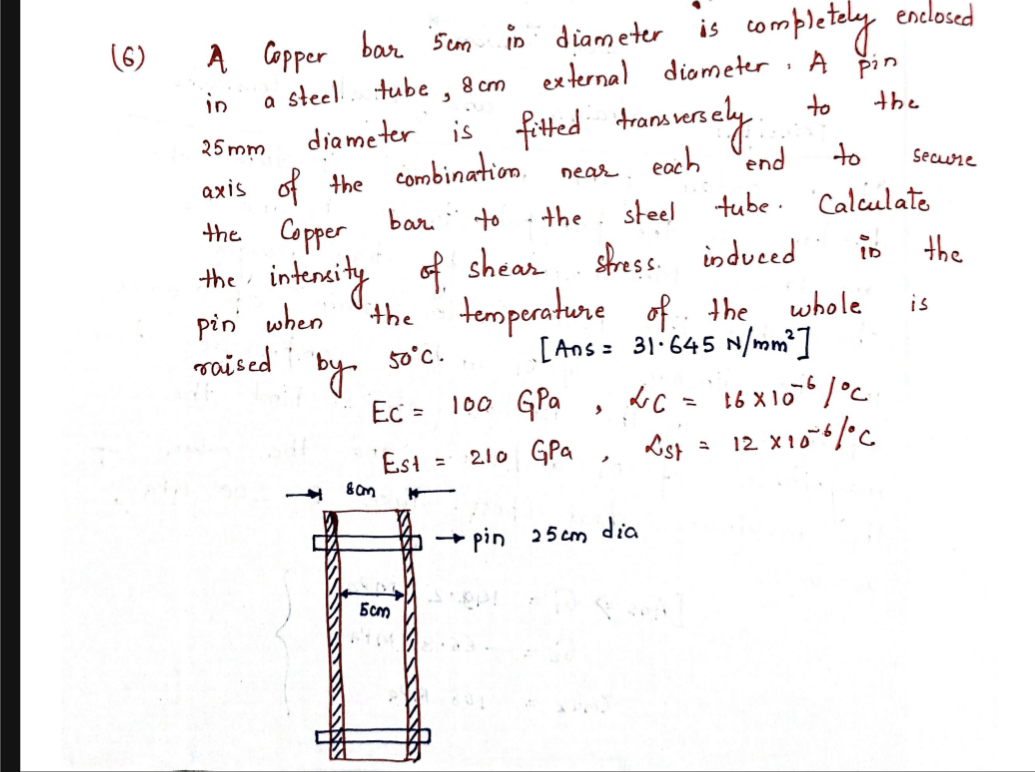 (6) A Copper bar 5cm in diameter is completely enclosed
in a steel tube, 8cm external diameter. A pin
25mm diameter is fitted transversely to the
axis of the combination near each end to secure
the Copper bar to the steel tube. Calculate
the intensity of shear stress induced in the
pin when the temperature of the whole is
raised by 50°C. [Ans = 31.645 N/mm²]
EC = 100 GPa, αC = 16 x 10⁻⁶ /°C
Est = 210 GPa, αst = 12 x 10⁻⁶/°C
8cm
pin 25cm dia
5cm